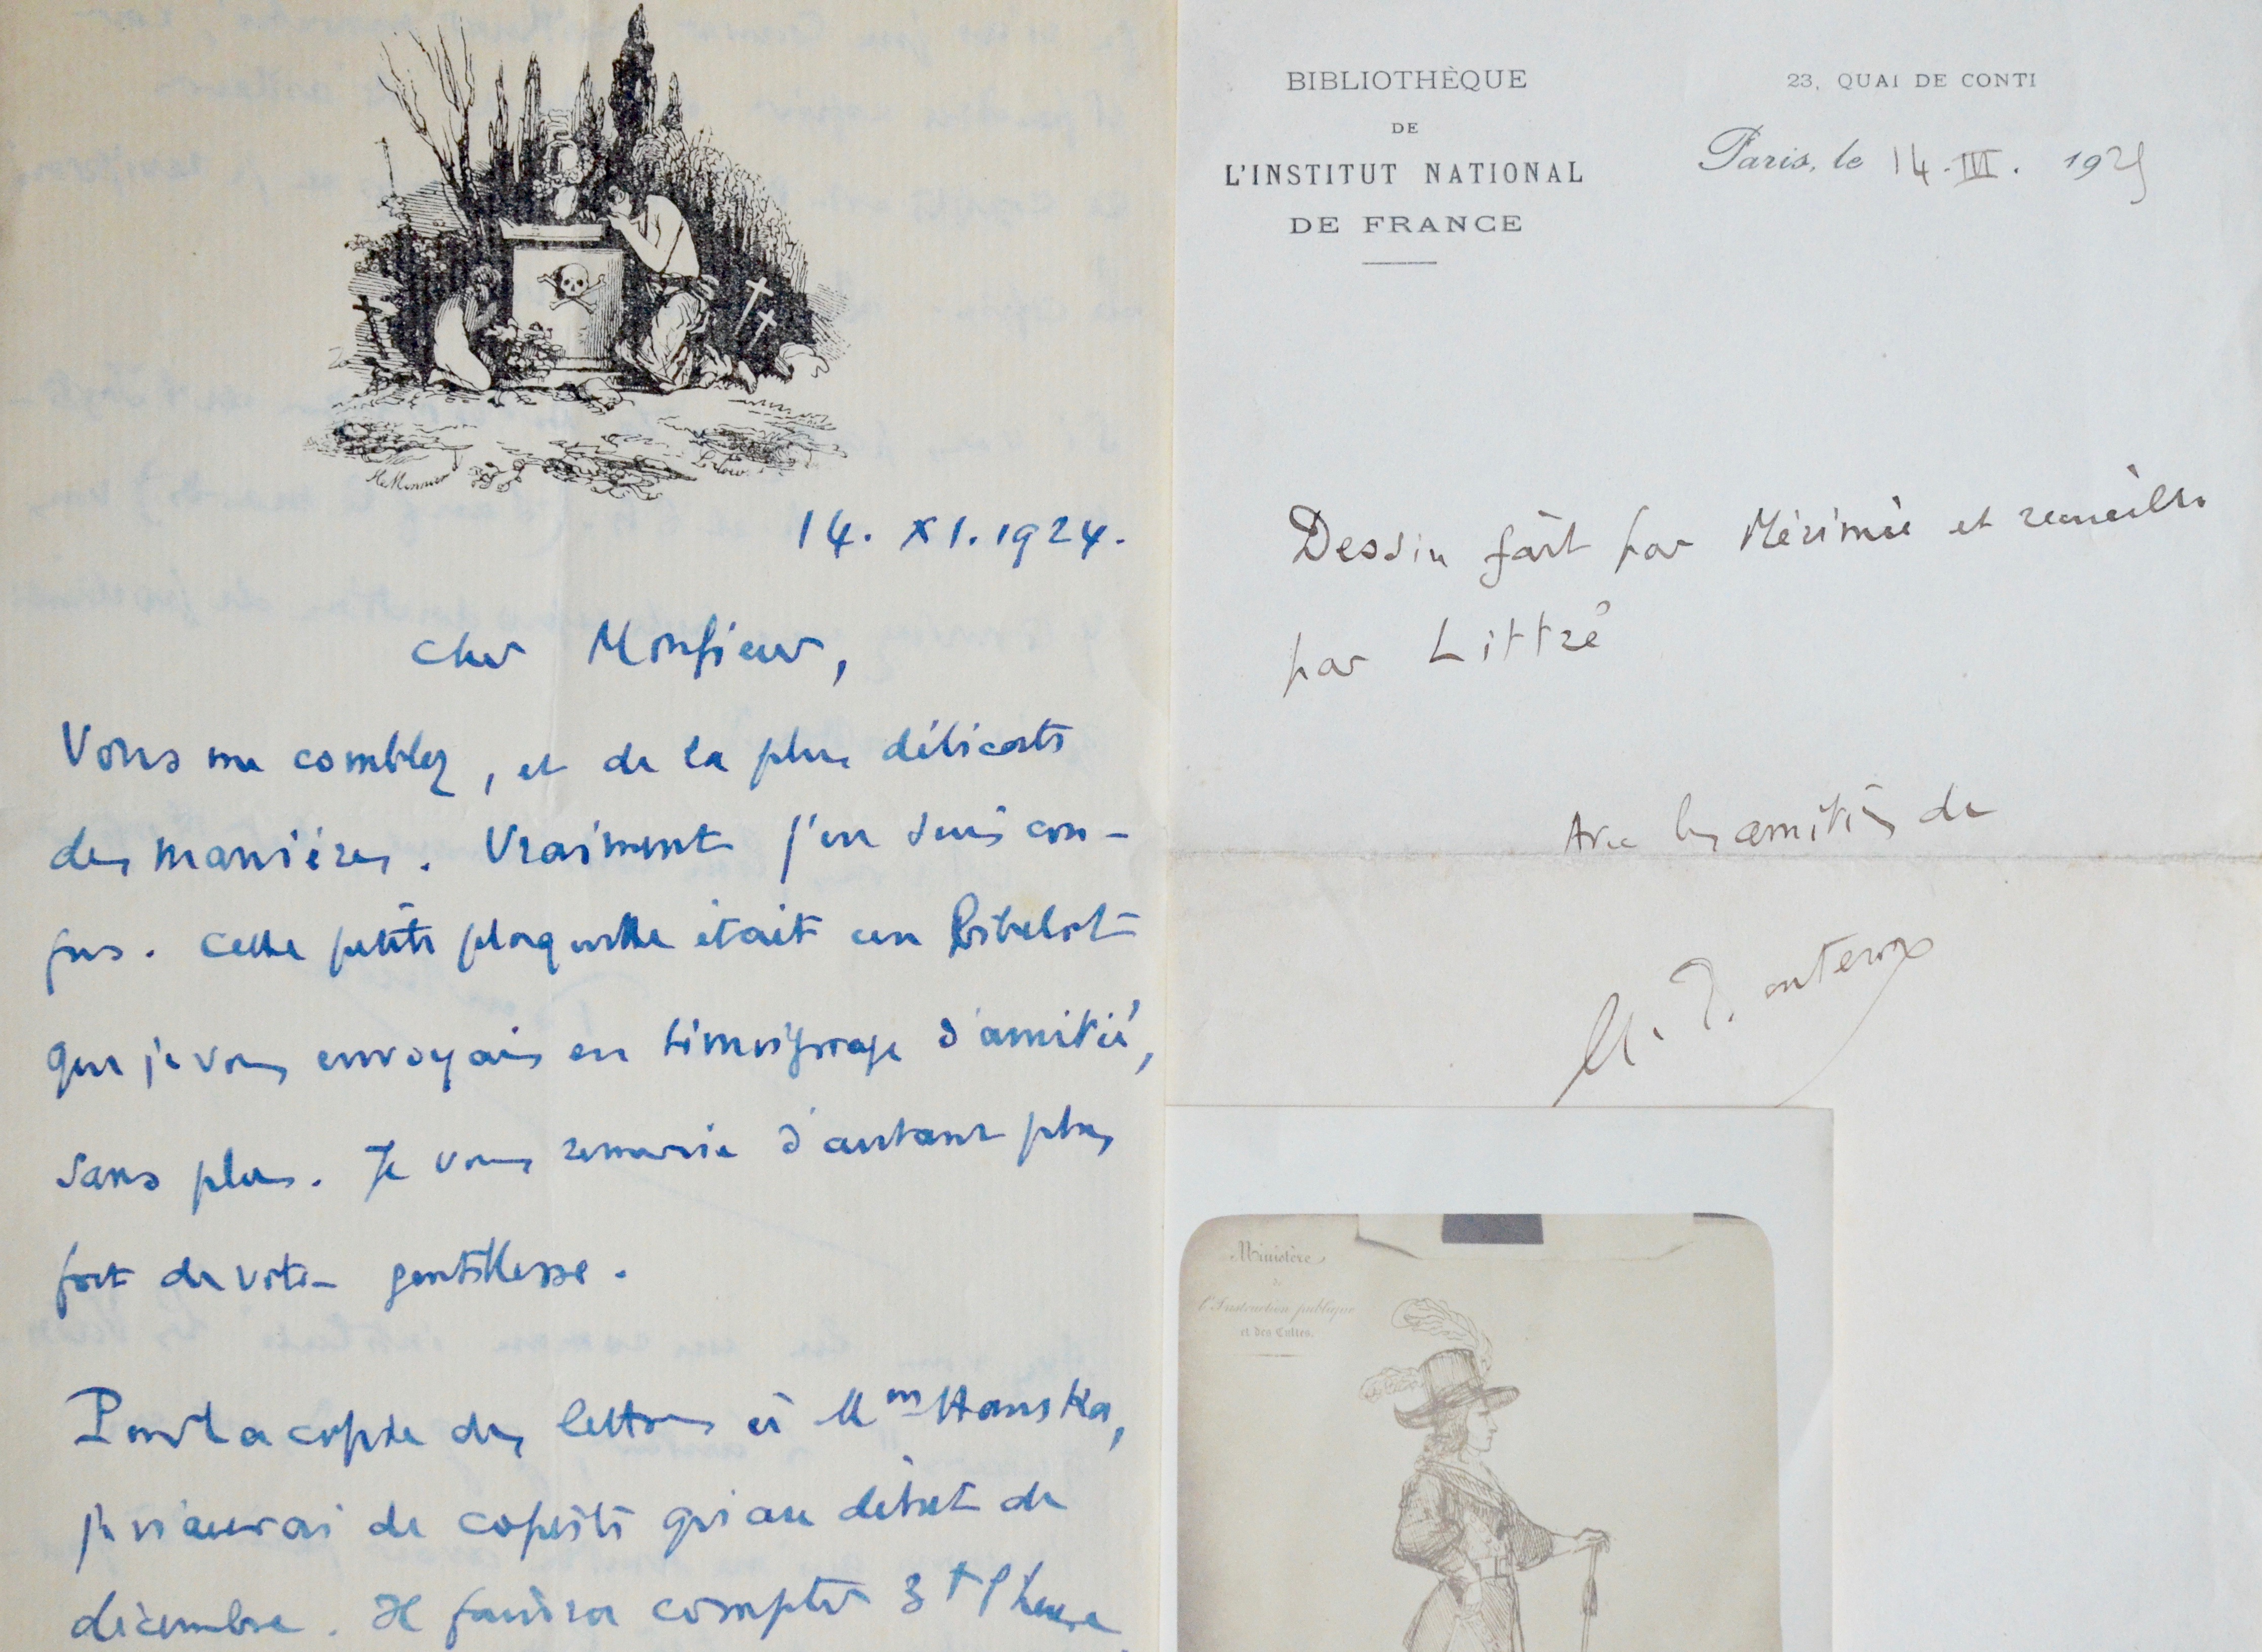 14. XI. 1924.
Cher Monsieur,
Vous me comblez, et de la plus délicate
des manières. Vraiment j'en suis con-
fus. Cette petite plaquette était un bibelot
que je vous envoyais en témoignage d'amitié,
sans plus. Je vous remercie d'autant plus
fort de votre gentillesse.
Pour la copie des lettres à Mme Hanska,
je n'aurai de copiste qu'au début de
décembre. Il faudra compter 3f l'heure
BIBLIOTHÈQUE
DE
L'INSTITUT NATIONAL
DE FRANCE
23, QUAI DE CONTI
Paris, le 14. III. 1925
Dessin fait par Mérimée et recueilli
par Littré
Avec les amitiés de
M. Bouteron
Ministère
de
l'Instruction publique
et des Cultes.